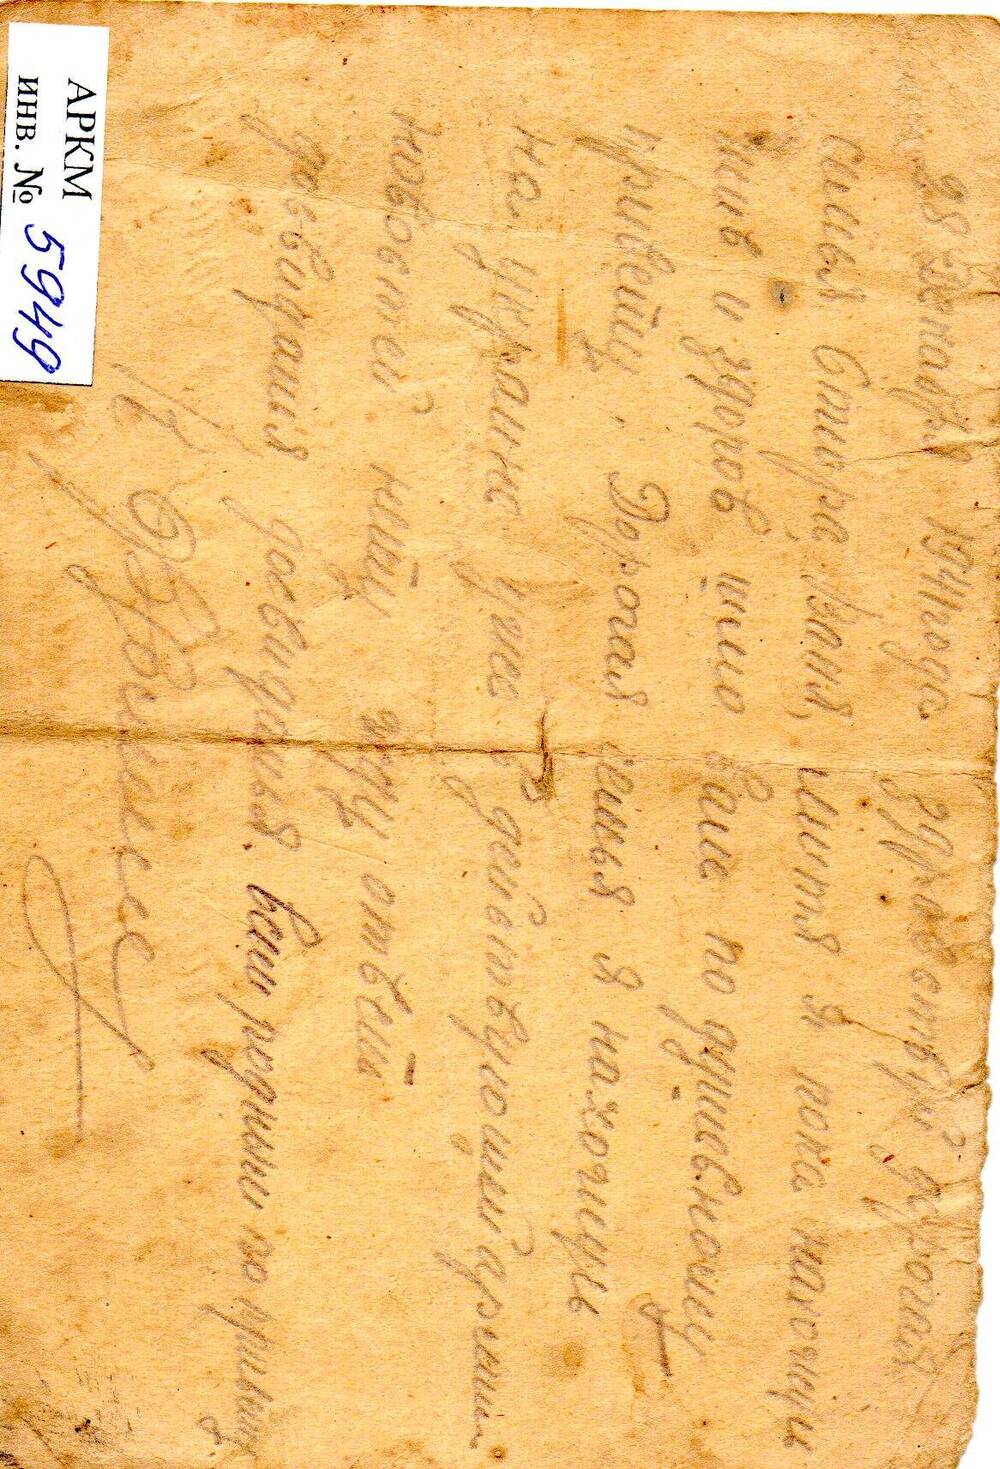 28 Декабря 1941 года здравствуй дорогая
семья Стюра, Ваня, Митя я пока нахожусь
жив и здоров шлю вам по душевному
привету. Дорогая семья я нахожусь
на украине уже в действующей армии
новостей нету жду ответь
досвиданья досвиданья. всем родным по привету
К
АРКМ
инв. № 5949